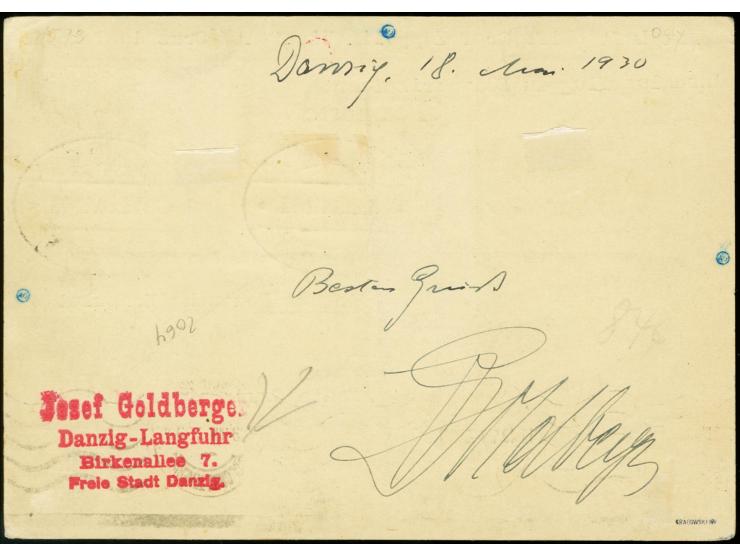 Danzig, 18. Mai. 1930
Besten Gruß
Josef Goldberger
Danzig-Langfuhr
Birkenallee 7.
Freie Stadt Danzig.